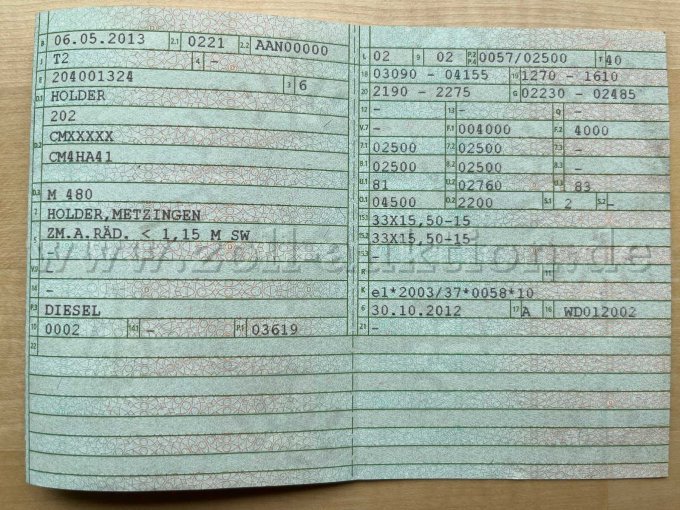 B 06.05.2013 2.1 0221 2.2 AAN00000
J T2 4 -
E 204001324 3 6
D.1 HOLDER
202
D.2 CMXXXXX
CM4HA41
D.3 M 480
2 HOLDER,METZINGEN
5 ZM.A.RÄD. < 1,15 M SW
-
V.9 -
14 -
P.3 DIESEL
10 0002 14.1 - P.1 03619
22
L 02 9 02 P.2 P.4 0057/02500 T 40
18 03090 - 04155 19 1270 - 1610
20 2190 - 2275 G 02230 - 02485
12 - 13 - Q -
V.7 - F.1 004000 F.2 4000
7.1 02500 7.2 02500 7.3 -
8.1 02500 8.2 02500 8.3 -
U.1 81 U.2 02760 U.3 83
O.1 04500 O.2 2200 S.1 2 S.2 -
15.1 33X15,50-15
15.2 33X15,50-15
15.3 -
R 11
K e1*2003/37*0058*10
6 30.10.2012 17 A 16 WD012002
21 -
www.zoll-auktion.de